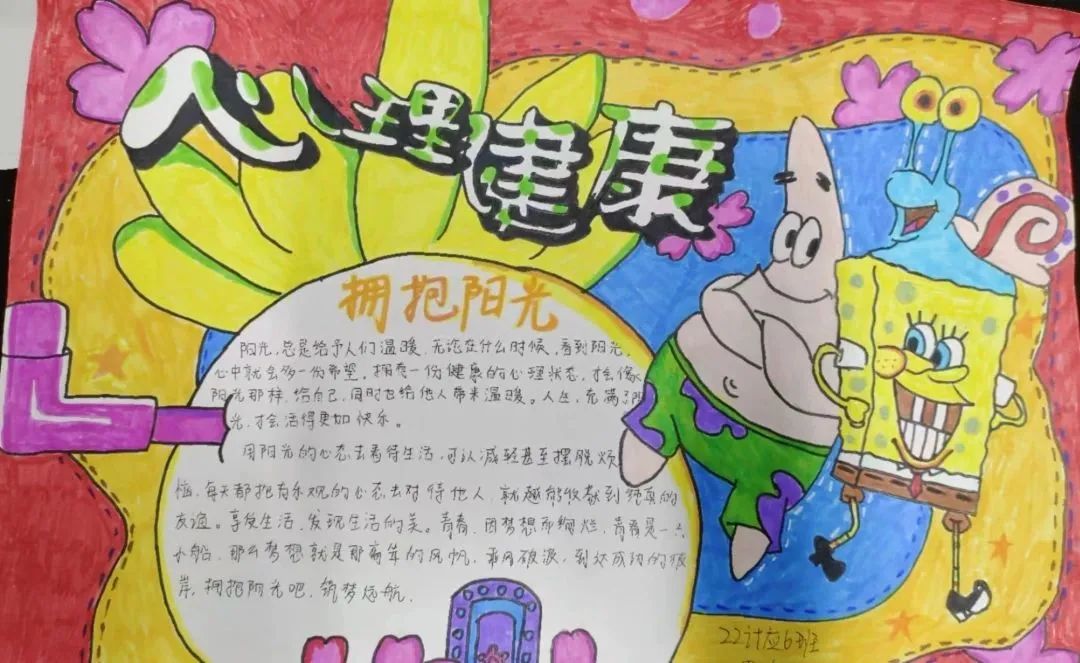 心理健康
拥抱阳光
阳光,总是给予人们温暖.无论在什么时候,看到阳光,
心中就会多一份希望,拥有一份健康的心理状态,才会像
阳光那样.给自己,同时也给他人带来温暖。人生,充满了阳
光,才会活得更如快乐。
用阳光的心态去看待生活,可以减轻甚至摆脱烦
恼,每天都抱有乐观的心态去对待他人,就越能收获到纯真的
友谊。享受生活,发现生活的美。青春,因梦想而绚烂,青春是一只
小船,那么梦想就是那扇年的风帆,乘风破浪,到达成功的彼
岸,拥抱阳光吧,筑梦远航.
22计应6班